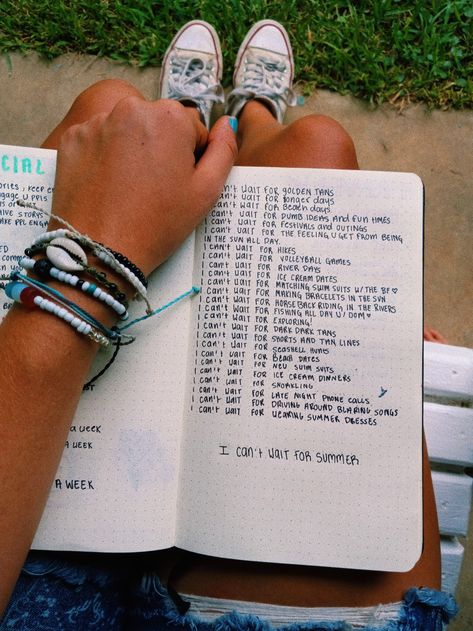 CIAL
ories , keep
ngage u ppls
ave storys
ake ppl
A WEEK
A WEEK
I can't wait FOR GOLDEN TANS
can't wait FOR longer days
can't wait FOR Beach days
I can't wait FOR DUMB IDEAS And fun TIMES
I can't wait FOR FESTIVALS and OUTINGS
I can't wait FOR THE FEELING U GET FROM BEING
IN THE SUN ALL DAY.
I can't wait FOR HIKES
I can't wait FOR VOLLEYBALL GAMES
I can't wait FOR RIVER DAYS
I can't wait FOR ICE CREAM DATES
I can't wait FOR MATCHING SWIM SUITS W/THE BF ♡
I can't wait FOR MAKING BRACELETS IN THE SUN
I can't wait FOR HORSEBACK RIDING IN THE RIVERS
I can't wait FOR FISHING ALL DAY W/ DOM ♡
I can't wait FOR EXPLORING!
I can't wait FOR DARK DARK TANS
I can't wait FOR SHORTS AND TAN LINES
I can't wait FOR SEASHELL HUNTS
I can't wait FOR Beach DATES
I can't wait FOR NEW SWIM SUITS
I can't wait FOR ICE CREAM DINNERS
I can't wait FOR SNORKLING
I can't wait FOR LATE NIGHT PHONE CALLS
I can't wait FOR DRIVING AROUND BLARING SONGS
I can't wait FOR WEARING SUMMER DRESSES
I can't wait FOR SUMMER